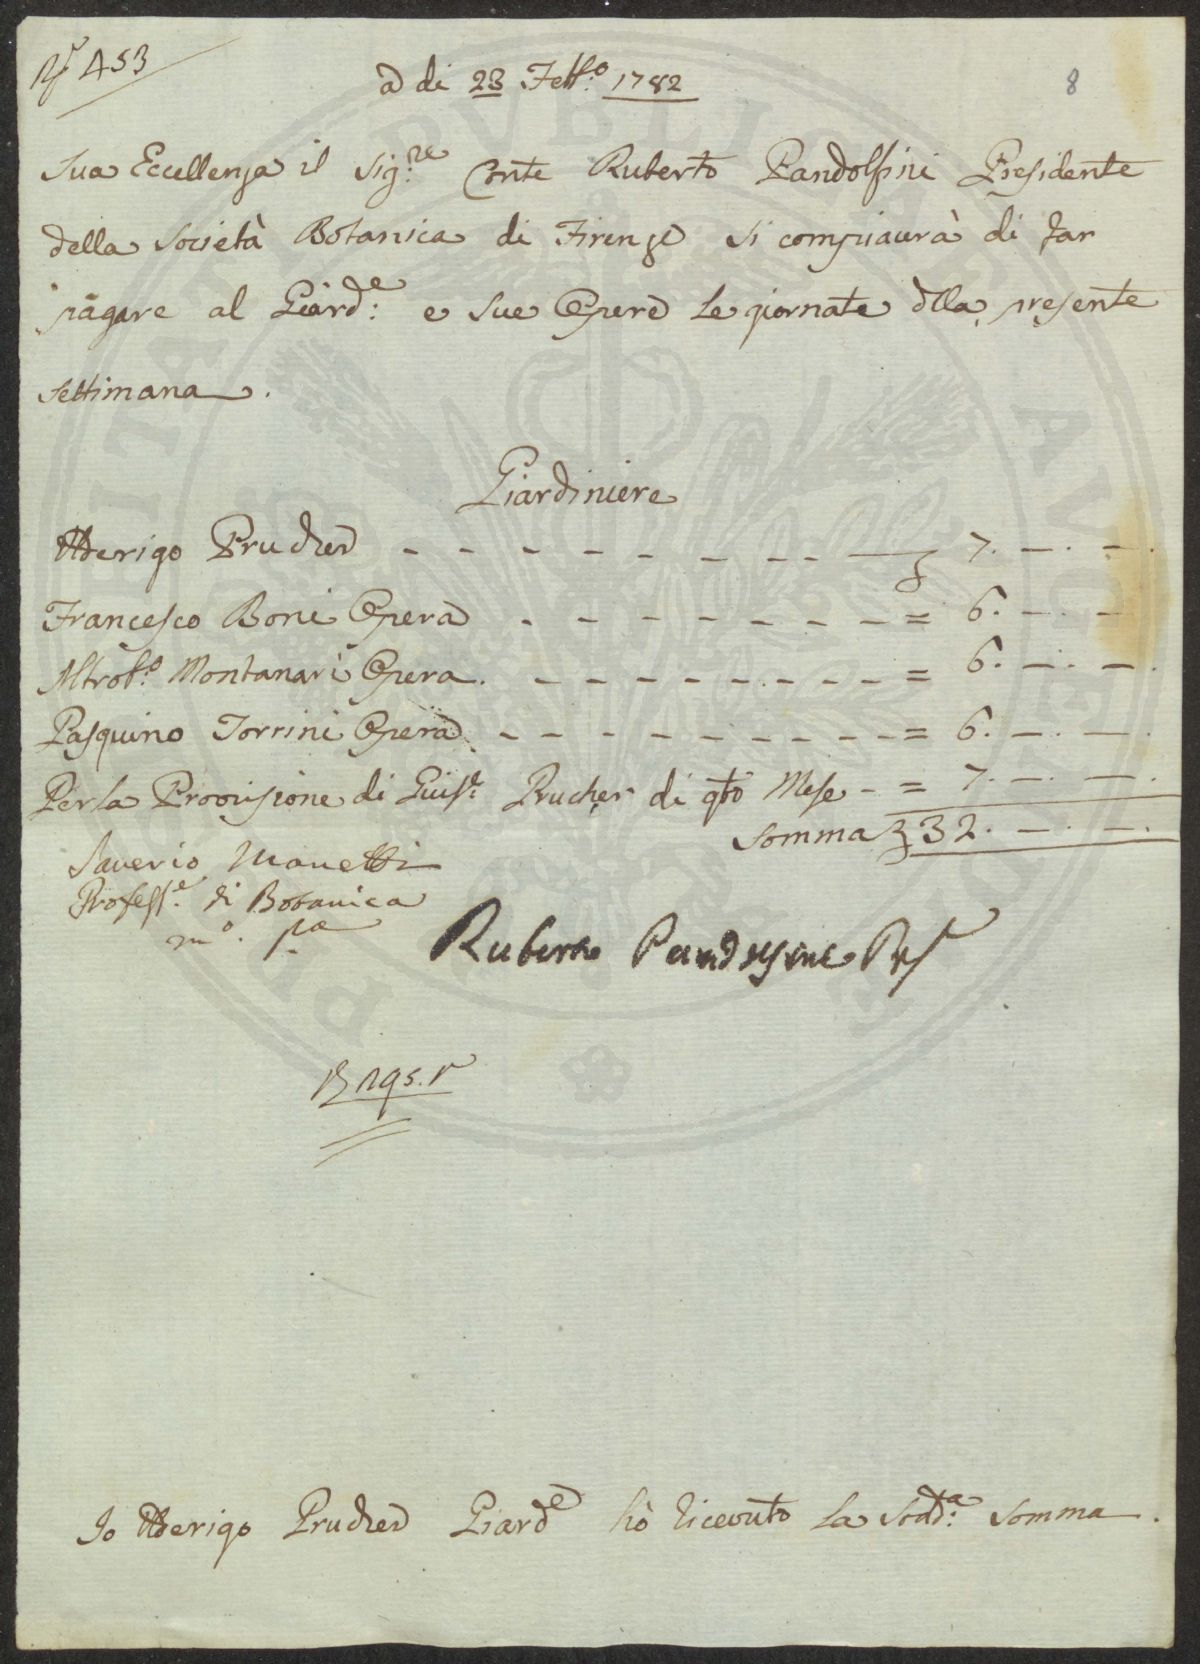 N.º 453
a di 23 Febb.º 1782
8
Sua Eccellenza il Sig.re Conte Ruberto Pandolfini Presidente
della Società Botanica di Firenze si compiacerà di far
pagare al Giard.e e sue Opere le giornate dlla presente
settimana.
Giardiniere
Arrigo Prucher - - - - - - - - - 7. —. —.
Francesco Boni Opera - - - - - - - = 6. —. —
Altrob.º Montanari Opera. - - - - - - - = 6. —. —.
Pasquino Torrini Opera - - - - - - - - = 6. —. —.
Per la Provvisione di Guis.e Prucher di qto Mese - = 7. —. —.
Somma 32. —. —.
Saverio Manetti
Profess.e di Botanica
m.º p.a
Ruberto Pandolfini Pres
Io Arrigo Prucher Giard.e hò ricevuto la Sudd.a Somma.
PUBLICAE